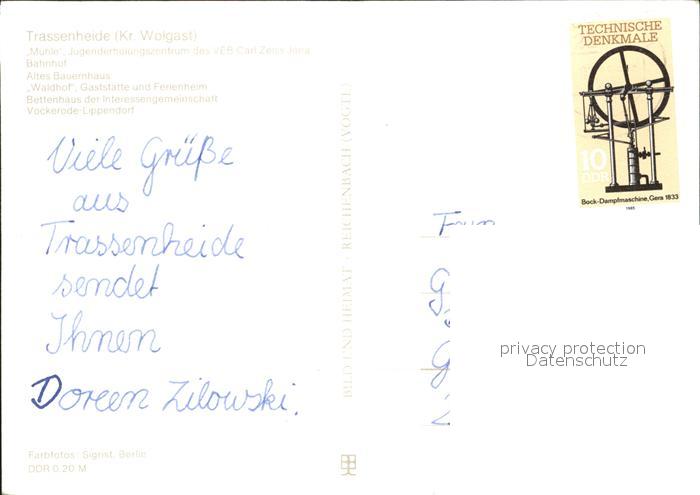 Trassenheide (Kr. Wolgast)
„Mühle", Jugenderholungszentrum des VEB Carl Zeiss Jena
Bahnhof
Altes Bauernhaus
„Waldhof", Gaststätte und Ferienheim
Bettenhaus der Interessengemeinschaft
Vockerode-Lippendorf
Viele Grüße
aus
Trassenheide
sendet
Ihnen
Doreen Zilowski.
Farbfotos: Sigrist, Berlin
DDR 0,20 M
BILD UND HEIMAT · REICHENBACH (VOGTL)
TECHNISCHE
DENKMALE
10
DDR
Bock-Dampfmaschine, Gera 1833
1985
G
G
privacy protection
Datenschutz